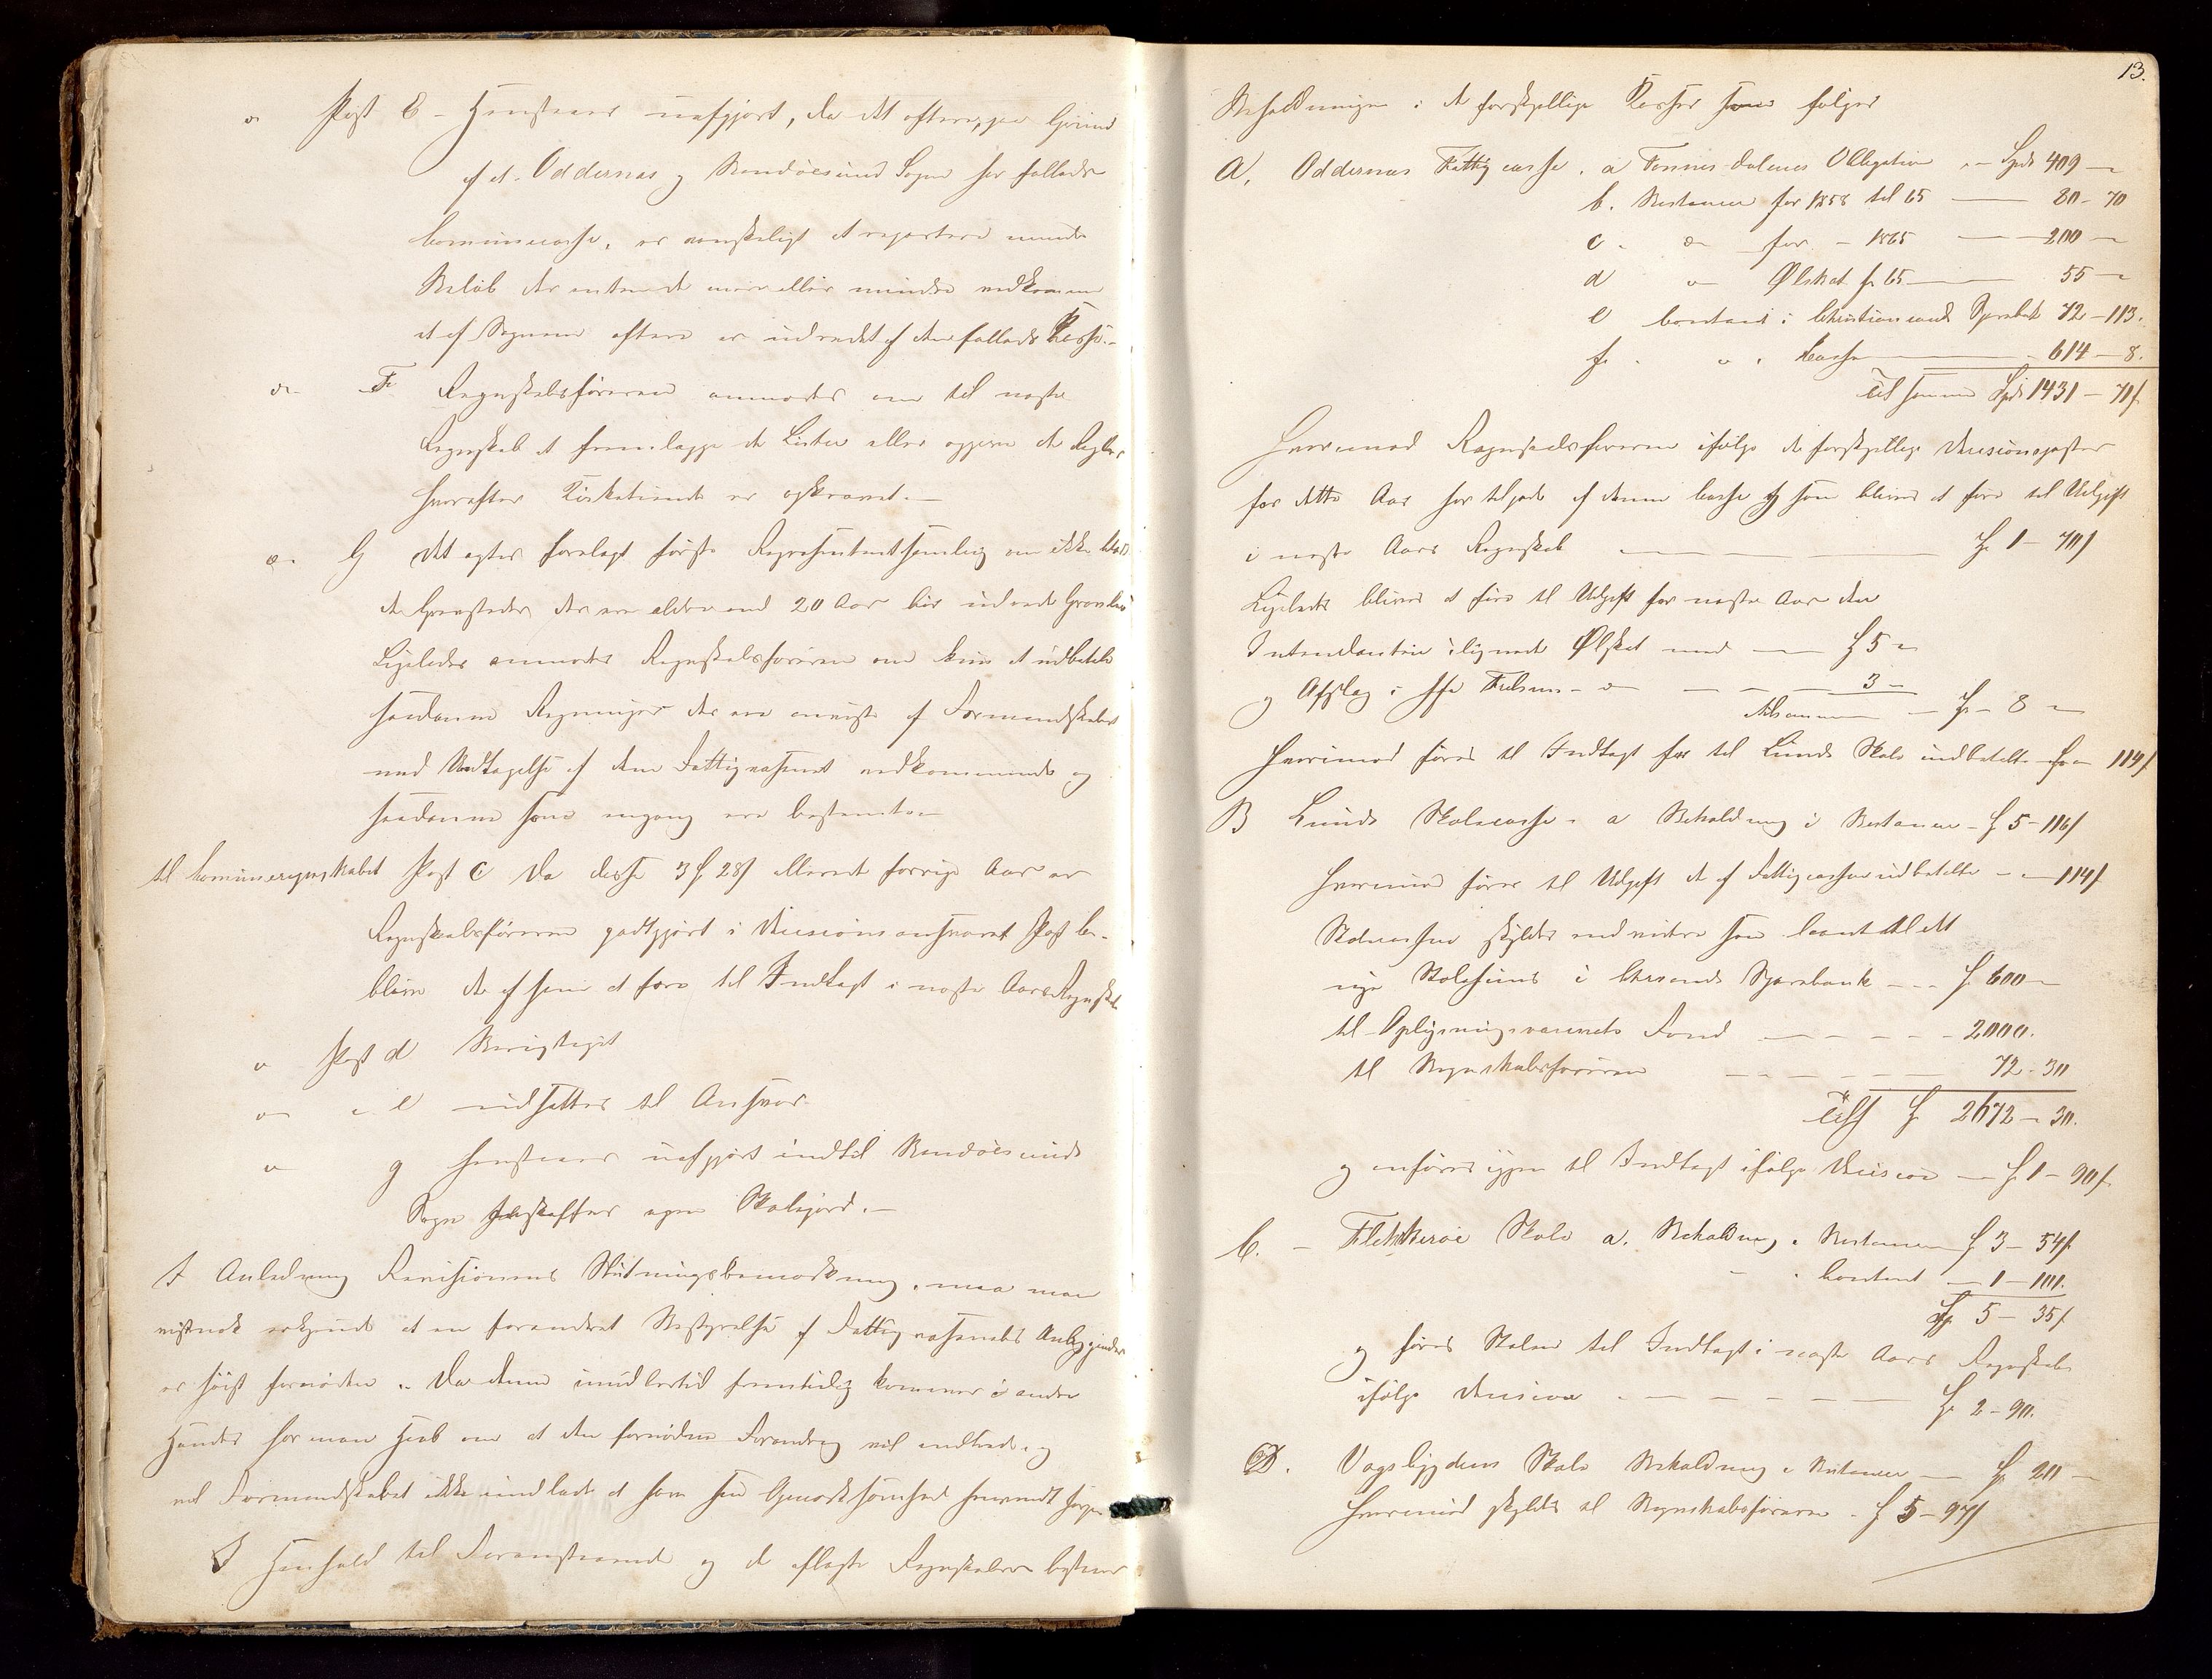 " Post E - Henstaaer uafgjort, da det oftere, paa Grund
af at Oddernæs og Randøesund Sogne har fælleds
Communecasse, er vanskeligt at repartere mindre
Beløb der enten det mere eller mindre vedkomme
et af Sognene oftere er udredet af den fælleds Kasse.-
" - F Regnskabsføreren anmodes om til næste
Regnskab at fremlægge de Lister eller opgive de Regler
hvorefter Kirketiende er opkrævet.-
" - G Det agtes forelagt første Repræsentantsamling om ikke
de Gravsteder der ere ældre end 20 Aar bør
Ligeledes anmodes Regnskabsføreren om kun at udbetale
saadanne Regninger der ere anviste af Formandskabet
med Undtagelse af dem Fattigvæsenet vedkommende og
saadanne som engang ere bestemte.-
til Communeregnskabet Post C Da disse 3 Spd 28 s allerede forrige Aar er
Regnskabsføreren godtgjort i Decisions ansvaret Post
bliver de af ham at føre til Indtægt i næste Aars Regnskab
" Post d Berigtiget
" - e udsættes til Ansvar.
" g henstaaer uafgjort indtil Randøesunds
Sogn anskaffer egen Skolejord.-
I Anledning Revisionens Slutningsbemærkning, maa man
vistnok erkjende at en forandret Bestyrelse af Fattigvæsenets Anliggender
er høist fornøden. Da denne imidlertid fremtidig kommer i andre
Hænder har man Haab om at den fornødne Forandring vil indtræde, og
vil Formandskabet ikke undlade at have sin Opmærksomhed henvendt
I Henhold til Foranstaaende og de aflagte Regnskaber bestaaer
13.
Beholdningen i de forskjellige Kasser som følger
A. Oddernæs Fattigcasse. a Tønnes Dalenes Obligation " - Spd 409 - "
b. Restancer for 1858 til 65 — 80 - 70
c. " do for - 1865 — 200 - "
d " Ølskat for 65 — 55 - "
e Contant i Christianssands Sparebank 72 - 113.
f. " " Kasse — 614 - 8.
Tilsammen Spd 1431 - 71 s
Hvorimod Regnskabsføreren ifølge de forskjellige Decisionsposter
for dette Aar har tilgode af denne Casse og som bliver at føre til Udgift
i næste Aars Regnskab — Spd 1 - 70 s
Ligeledes bliver at føre til Udgift for næste Aar den
Intendanten ilignede Ølskat med — Spd 5 "
og Afslag i — 3 -
tilsammen - Spd - 8 "
Hvorimod føres til Indtægt for til Lunds Skole indbetalte Spd " 114 s
B Lunds Skolecasse. a Beholdning i Restancer - Spd 5 - 116 s
hvorimod føres til Udgift de af Fattigcassen udbetalte - " - 114 s
Skolecassen skylder endvidere som laant til det
nye Skolehuus i Christiansands Sparebank - - - Spd 600 -
til Oplysningsvæsenets Fond — 2000.
til Regnskabsføreren — 72 - 30
Tils Spd 2672 - 30.
og anføres igjen til Indtægt ifølge Decision — Spd 1 - 90 s
C. - Flekkerøe Skole a. Beholdning i Restancer Spd 3 - 54 s
- " contant — 1 - 101.
Spd 5 - 35 s
og føres Skolen til Indtægt i næste Aars Regnskab
ifølge Decision — Spd 2 - 90.
D. Vaagsbygdens Skole Beholdning i Restancer — Spd 20 -
hvorimod skyldes til Regnskabsføreren - Spd 5 - 97 s